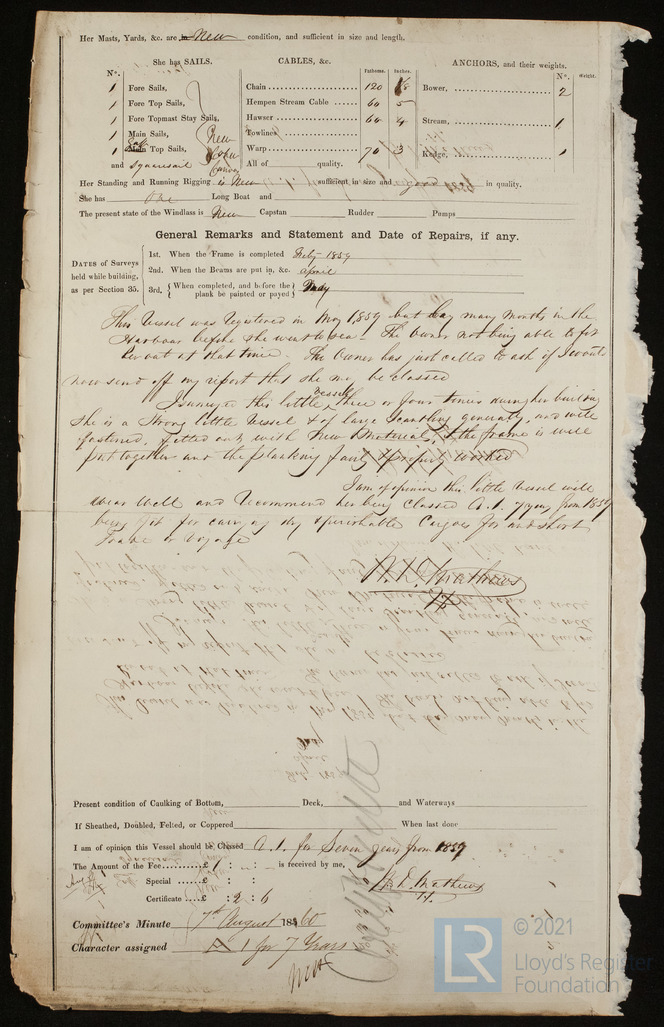 Her Masts, Yards, &c. are in New condition, and sufficient in size and length.
She has SAILS. CABLES, &c. ANCHORS, and their weights.
N°. Fathoms. Inches. N°. Weight.
1 Fore Sails, Chain 120 Bower, 2
1 Fore Top Sails, Hempen Stream Cable 60 5
1 Fore Topmast Stay Sails, Hawser 60 4 Stream, 1
1 Main Sails, New Towlines
1 Main Top Sails, Warp 70 3 Kedge, 1
and Squaresail Canvas All of quality.
Her Standing and Running Rigging is New sufficient in size and good in quality.
She has One Long Boat and
The present state of the Windlass is New Capstan Rudder Pumps
General Remarks and Statement and Date of Repairs, if any.
DATES of Surveys held while building, as per Section 35.
1st. When the Frame is completed Feby 1859
2nd. When the Beams are put in, &c. April
3rd. { When completed, and before the plank be painted or payed } May
This Vessel was Registered in May 1859 but lay many months in the
Harbour before she went to sea - The Owner not being able to fit
her out at that time. The Owner has just called to ask if I would
now send off my report that she may be classed
I surveyed this little vessel three or four times during her building
She is a Strong little Vessel & of large Scantling generally, and well
fastened, fitted out with New Materials, & the frame is well
put together and the planking fairly & properly worked
I am of opinion this little vessel will
wear well and Recommend her being Classed A.1. 7 years from 1859
being fit for carrying dry & perishable Cargoes for and short
Trade or Voyage
W. D. Mathews
Present condition of Caulking of Bottom, Deck, and Waterways
If Sheathed, Doubled, Felted, or Coppered When last done
I am of opinion this Vessel should be Classed A.1. for Seven years from 1859
The Amount of the Fee £ 1 : : is received by me,
Special £ : :
Certificate £ : 2 : 6
W. D. Mathews
Committee's Minute 7th August 1860
Character assigned A 1 for 7 Years
© 2021
LR
Lloyd's Register
Foundation